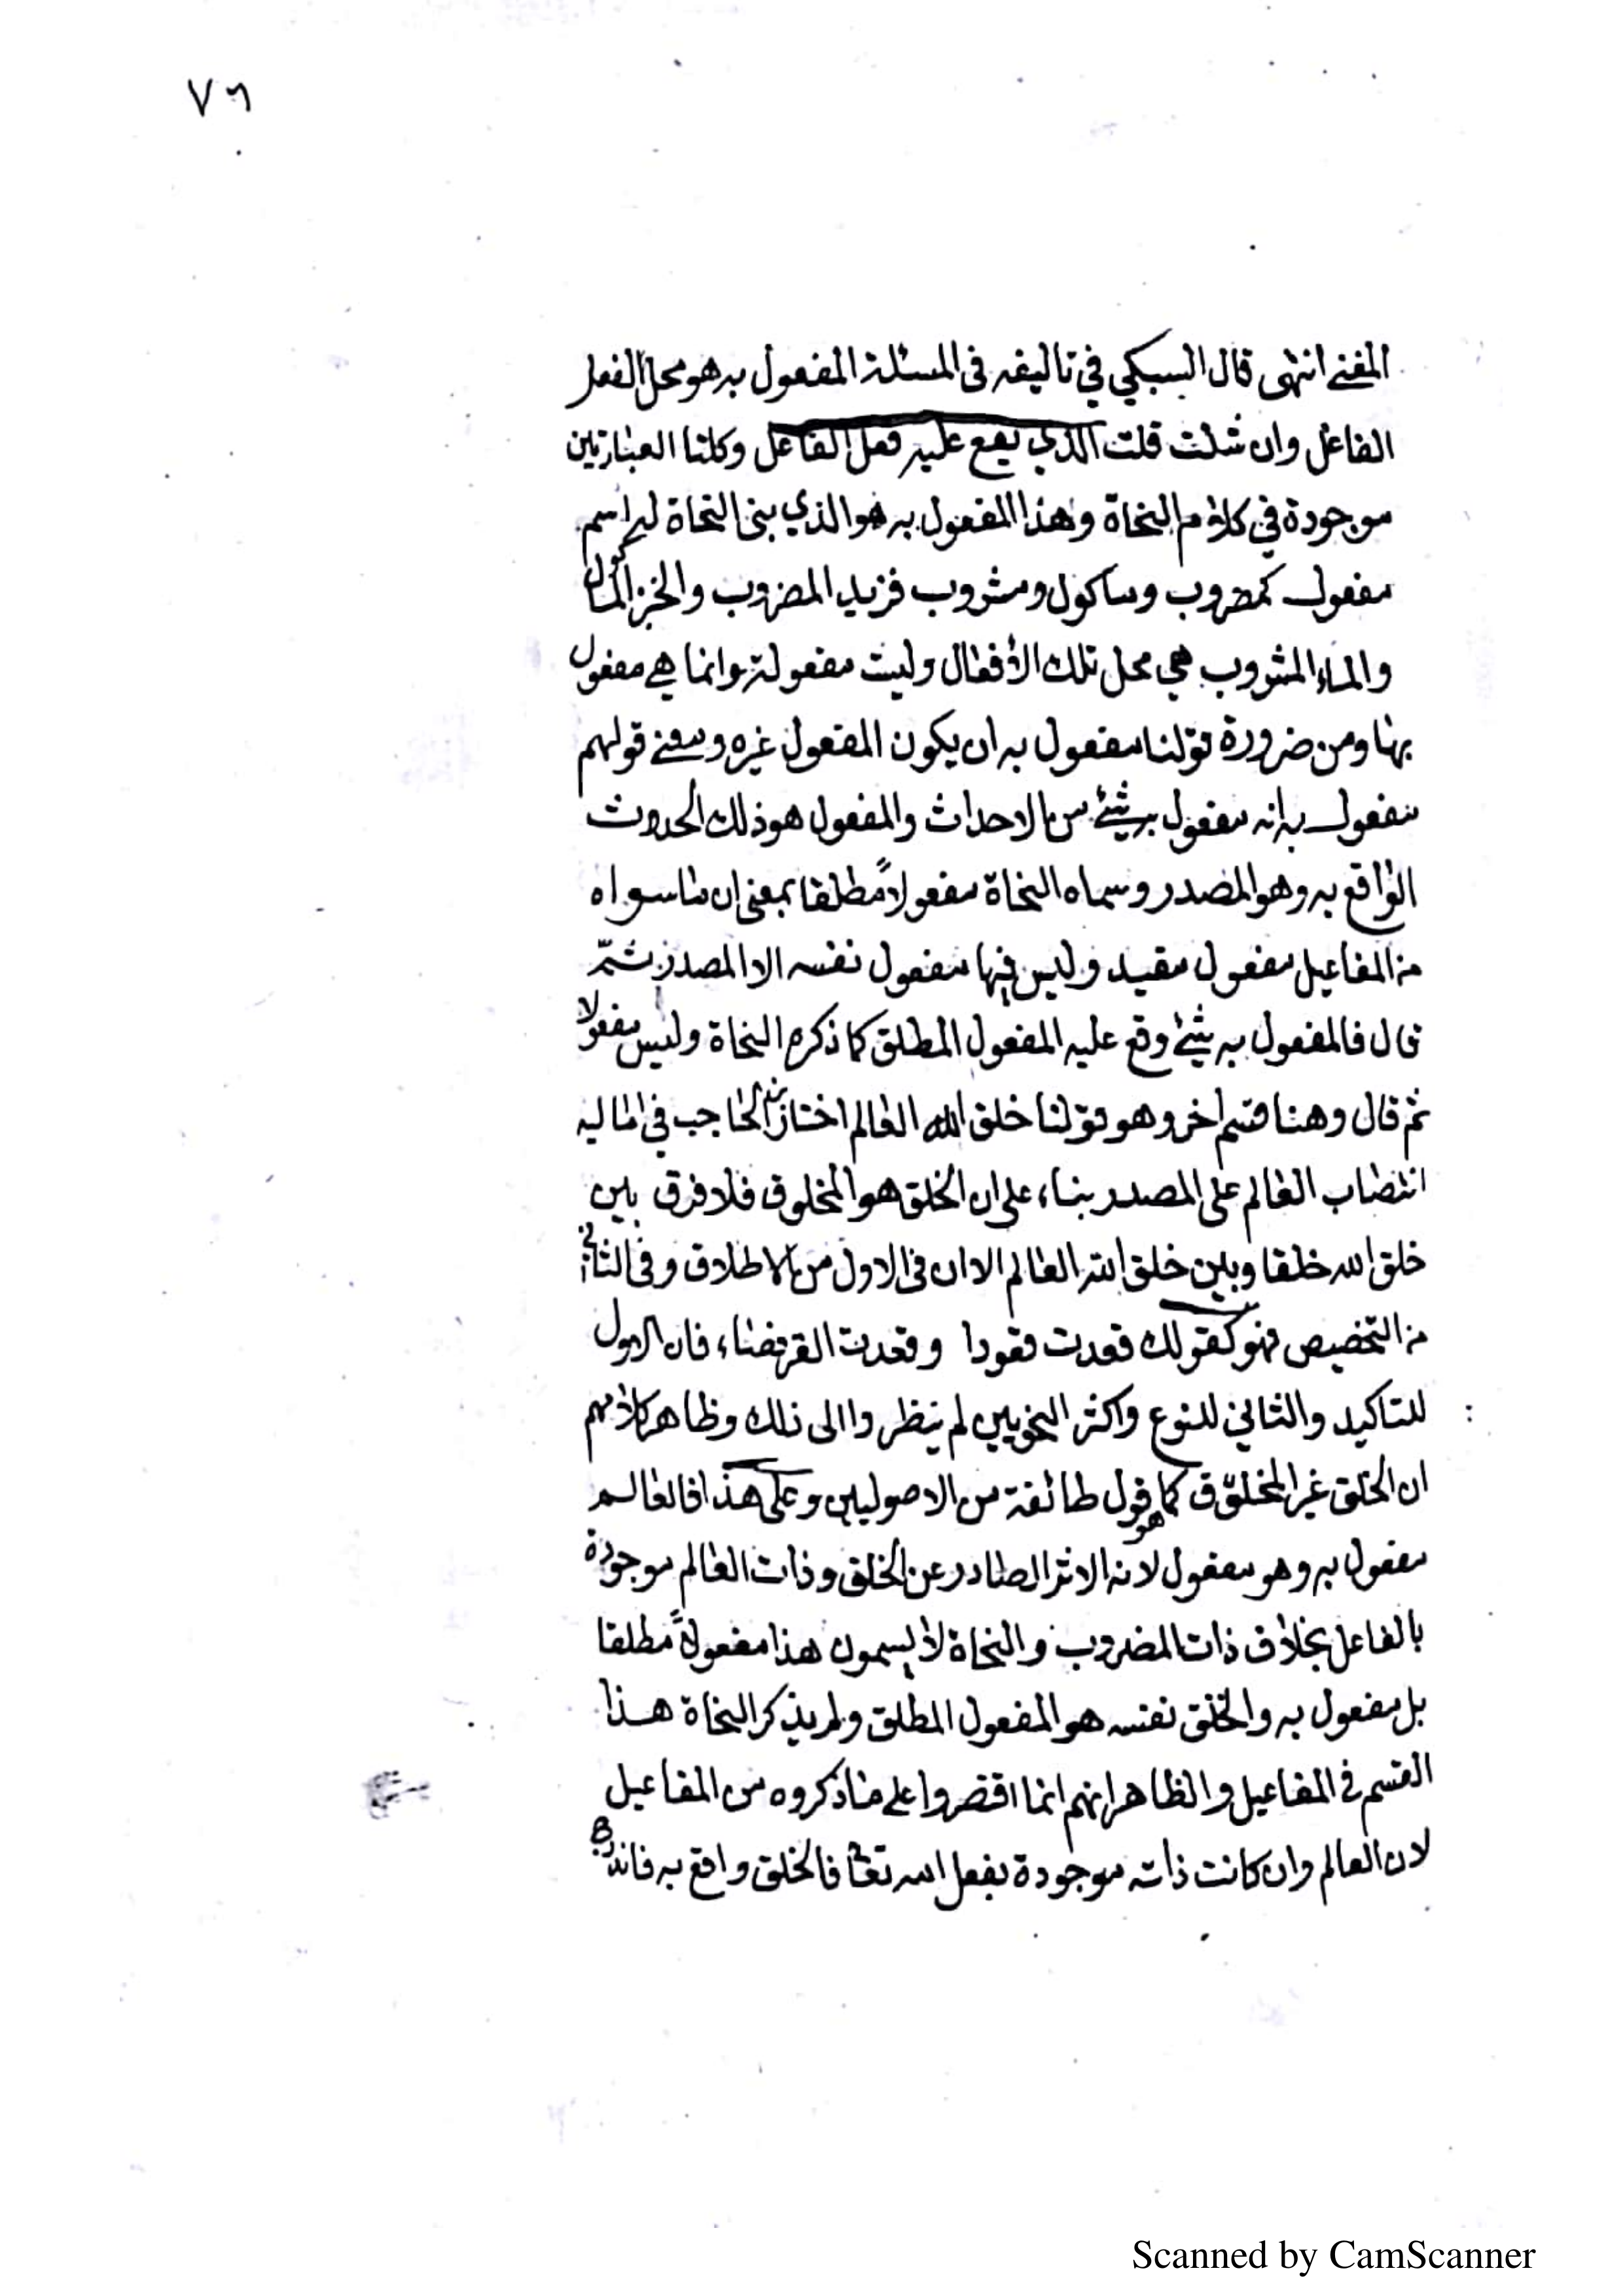 ٧٦
المغني انتهى قال السبكي في تاليفه في المسئلة المفعول به هو محل الفعل
الفاعل وان شئت قلت الذي يقع عليه فعل الفاعل وكلتا العبارتين
موجودة في كلام النحاة وهذا المفعول به هو الذي بنى النحاة له اسم
مفعول كمضروب وماكول ومشروب فزيد المضروب والخبز الماكول
والماء المشروب هي محل تلك الأفعال وليست مفعولة وانما هي مفعول
بها ومن ضرورة قولنا مفعول به ان يكون المفعول غيره ومعنى قولهم
مفعول به انه مفعول به شئ من الاحداث والمفعول هو ذلك الحدوث
الواقع به وهو المصدر وسماه النحاة مفعولاً مطلقا بمعنى ان ما سواه
من المفاعيل مفعول مقيد وليس فيها مفعول نفسه الا المصدر ثمّ
قال فالمفعول به شئ وقع عليه المفعول المطلق كما ذكره النحاة وليس مفعولا
ثم قال وهنا قسم اخر وهو قولنا خلق الله العالم اختار ابن الحاجب في اماليه
انتصاب العالم على المصدر بناء على ان الخلق هو المخلوق فلا فرق بين
خلق الله خلقا وبين خلق الله العالم الا ان في الاول من الاطلاق وفي الثاني
من التخصيص فهو كقولك قعدت قعودا وقعدت القرفصاء فان الاول
للتاكيد والثاني للنوع واكثر النحويين لم ينظروا الى ذلك وظاهر كلامهم
ان الخلق غير المخلوق كما هو قول طائفة من الاصوليين وعلى هذا فالعالم
مفعول به وهو مفعول لانه الاثر الصادر عن الخلق وذات العالم موجودة
بالفاعل بخلاف ذات المضروب والنحاة لا يسمون هذا مفعولاً مطلقا
بل مفعول به والخلق نفسه هو المفعول المطلق ولم يذكر النحاة هذا
القسم في المفاعيل والظاهر انهم انما اقتصروا على ما ذكروه من المفاعيل
لان العالم وان كانت ذاته موجودة بفعل الله تعالى فالخلق واقع به
Scanned by CamScanner